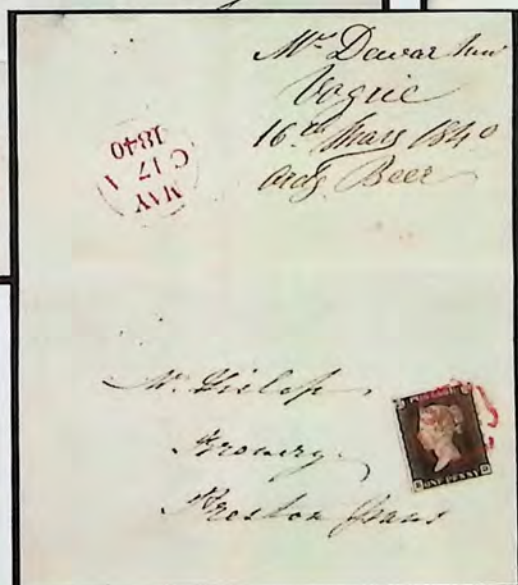 Mr Dewar
Vogrie
16th May 1840
ordg Beer
MAY
C 17 A
1840
Mr Hislop
Brewery
Preston Pans
POSTAGE
ONE PENNY